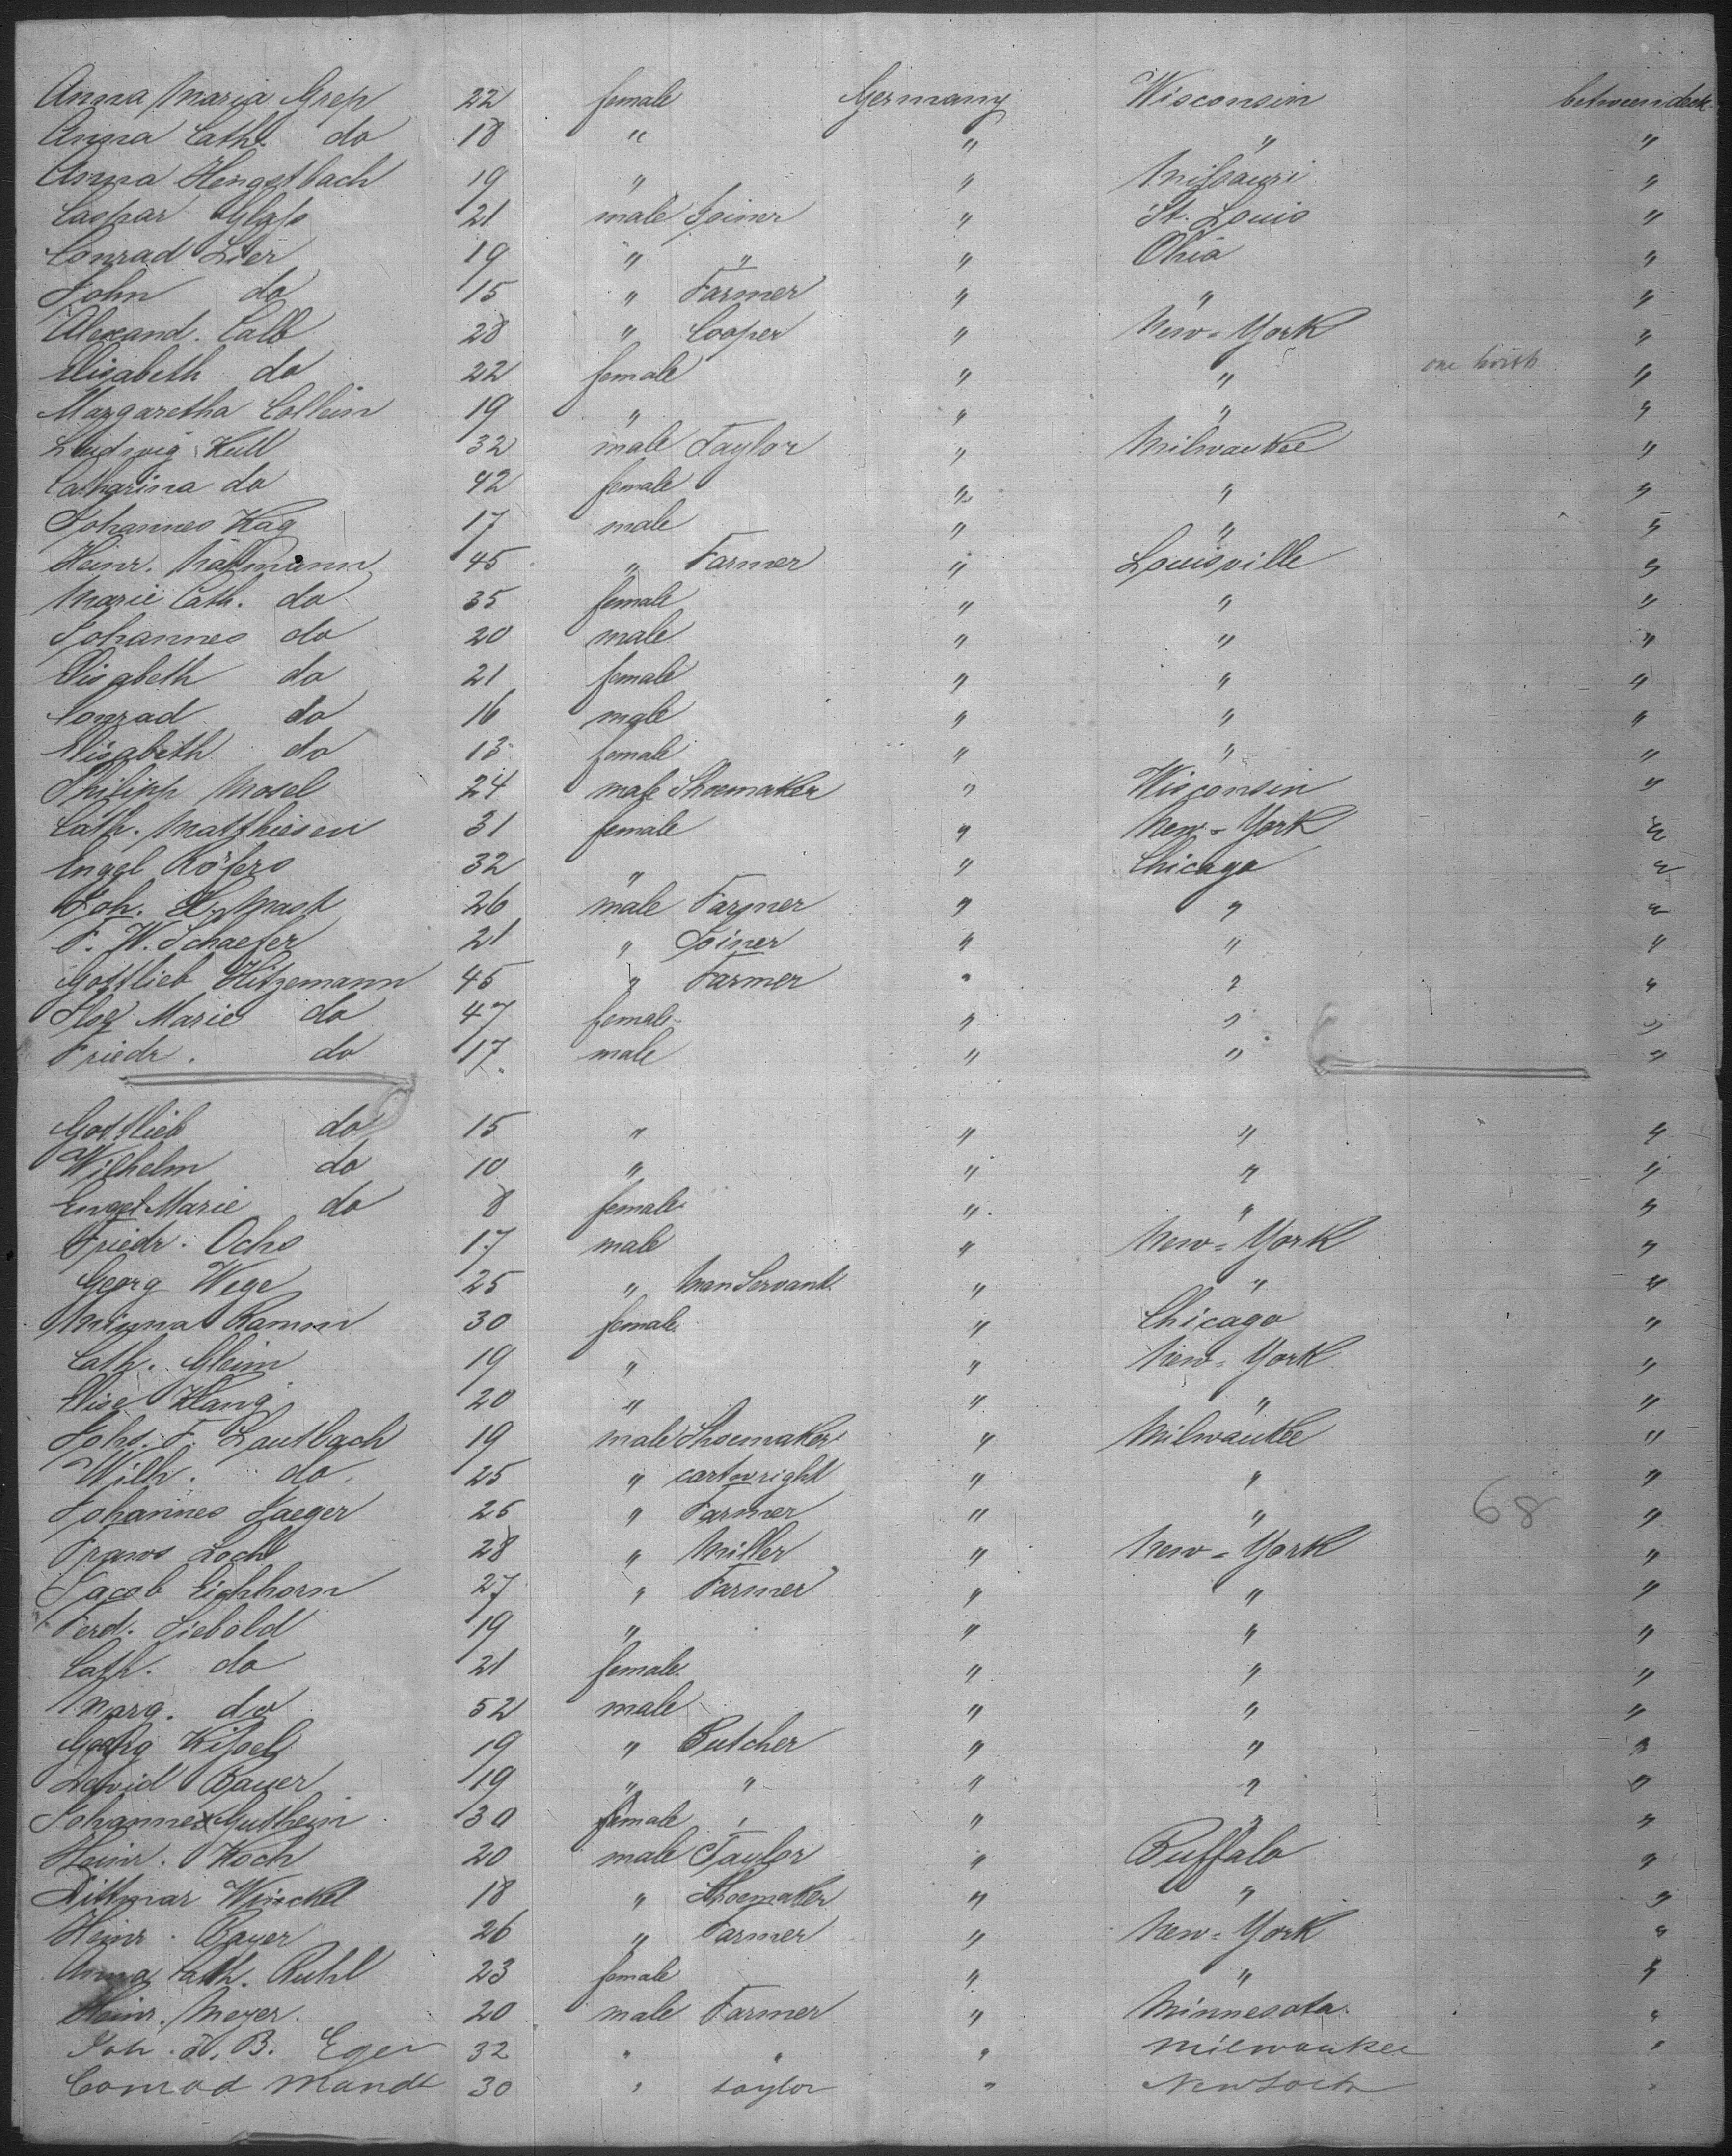 Anna Maria Grep 22 female Germany Wisconsin betweendeck
Anna Cath. do 18 " " " "
Anna Hengstbach 19 " " Missouri "
Caspar Glass 21 male Joiner " St. Louis "
Conrad Lier 19 " " " Ohio "
John do 15 " Farmer " " "
Alexand. Calb 28 " Cooper " New-York "
Elisabeth do 22 female " " one birth "
Margaretha Collein 19 " " " "
Ludwig Kull 32 male Taylor " Milwaukee "
Catharina do 42 female " " "
Johannes Kag 17 male " " "
Heinr. 45 " Farmer " Louisville "
Marie Cath. do 35 female " " "
Johannes do 20 male " " "
Elisabeth do 21 female " " "
Conrad do 16 male " " "
Elisabeth do 13 female " " "
Philipp Mosel 24 male Shoemaker " Wisconsin "
Cath. Matthiesen 31 female " New-York "
Engel Röfers 32 " " Chicago "
Joh. H. Mast 26 male Farmer " " "
F. W. Schaefer 21 " Joiner " " "
Gottlieb Hitzemann 45 " Farmer " " "
Ilse Marie do 47 female " " "
Friedr. do 17 male " " "
Gottlieb do 15 " " " "
Wilhelm do 10 " " " "
Engel Marie do 8 female " " "
Friedr. Ochs 17 male " New-York "
Georg Wege 25 " Man Servant " " "
Minna Ramm 30 female " Chicago "
Cath. Gleim 19 " " New-York "
Elise Klang 20 " " " "
Johs. F. Lautbach 19 male Shoemaker " Milwaukee "
Wilh. do. 25 " cartwright " " "
Johannes Jaeger 26 " Farmer " " 68 "
Franws Loch 28 " Miller " New-York "
Jacob Eichhorn 27 " Farmer " " "
Ferd. Siebold 19 " " " "
Cath. do 21 female " " "
Marg. do 52 male " " "
Georg Kissel 19 " Butcher " " "
David Bayer 19 " " " " "
Johannes Gutheim 30 female " " "
Heinr. Koch 20 male Taylor " Buffalo "
Dithmar Winckel 18 " Shoemaker " " "
Heinr. Bayer 26 " Farmer " New-York "
Anna Cath. Ruhl 23 female " " "
Heinr. Meyer. 20 male Farmer " Minnesota. "
Joh. H. B. Eger 32 " " " Milwaukee "
Conrad Mandt 30 " taylor " New York "